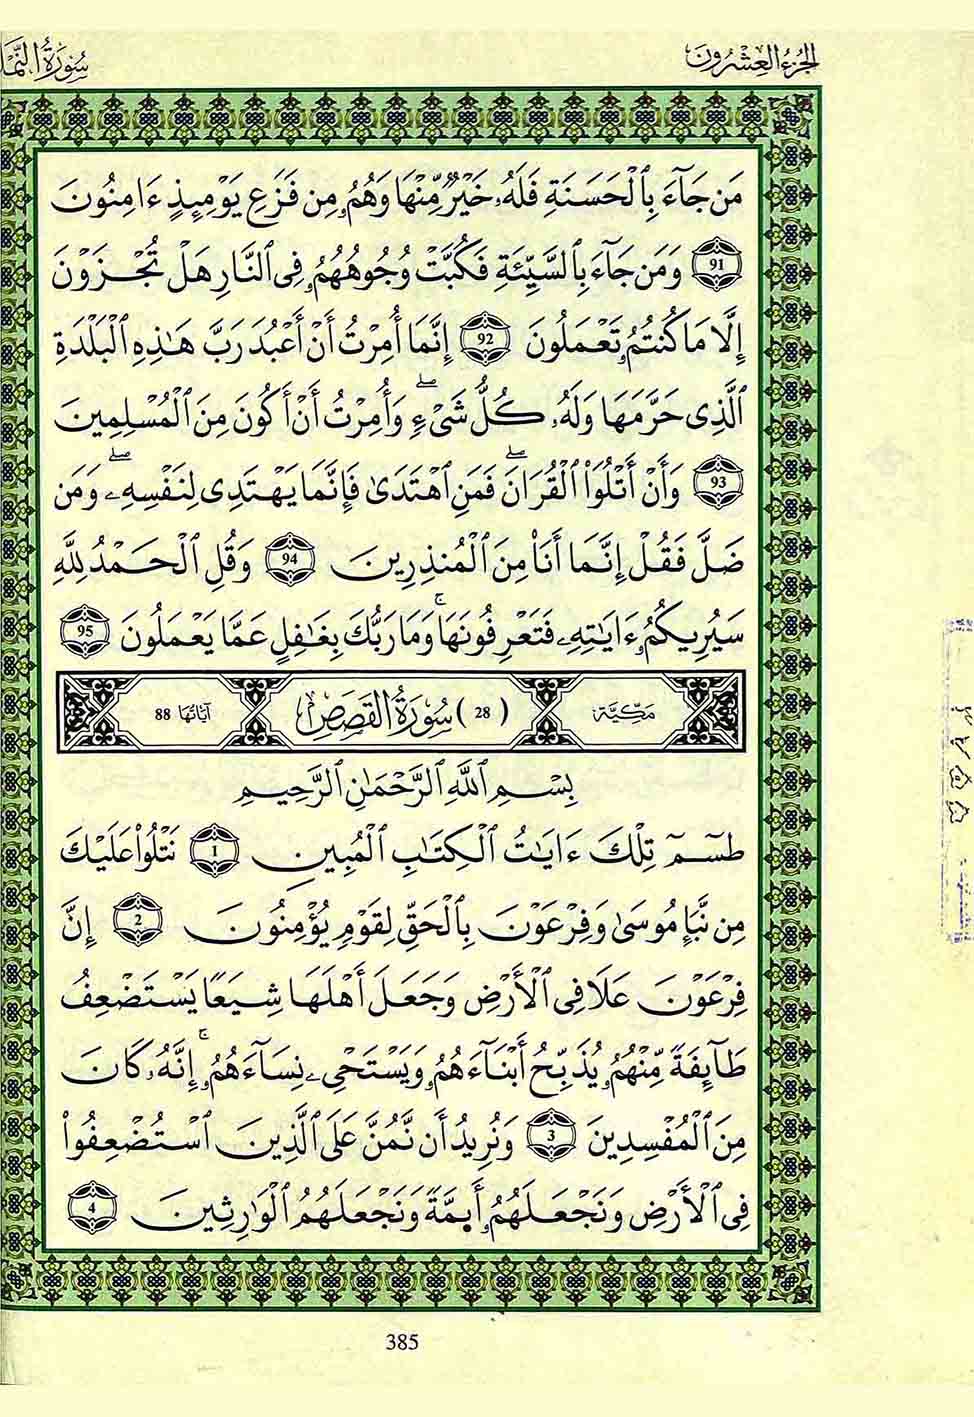 الجزء العشرون
سورة النمل
مَن جَآءَ بِالْحَسَنَةِ فَلَهُۥ خَيْرٌ مِّنْهَا وَهُمُۥ مِن فَزَعِ يَوْمَئِذٍ ءَامِنُونَ
91 وَمَن جَآءَ بِالسَّيِّئَةِ فَكُبَّتْ وُجُوهُهُمُۥ فِى النَّارِ هَلْ تُجْزَوْنَ
إِلَّا مَا كُنتُمُۥ تَعْمَلُونَ 92 إِنَّمَا أُمِرْتُ أَنْ أَعْبُدَ رَبَّ هَٰذِهِ الْبَلْدَةِ
الَّذِى حَرَّمَهَا وَلَهُۥ كُلُّ شَىْءٍۖ وَأُمِرْتُ أَنْ أَكُونَ مِنَ الْمُسْلِمِينَ
93 وَأَنْ أَتْلُوَاْ الْقُرَانَۖ فَمَنِ اهْتَدَىٰ فَإِنَّمَا يَهْتَدِى لِنَفْسِهِۦۖ وَمَن
ضَلَّ فَقُلْ إِنَّمَا أَنَاْ مِنَ الْمُنذِرِينَ 94 وَقُلِ الْحَمْدُ لِلَّهِ
سَيُرِيكُمُۥ ءَايَٰتِهِۦ فَتَعْرِفُونَهَاۚ وَمَا رَبُّكَ بِغَٰفِلٍ عَمَّا يَعْمَلُونَ 95
مَكِيَّة (28) سُورَةُ القَصَصِ آيَاتُهَا 88
بِسْمِ اللَّهِ الرَّحْمَٰنِ الرَّحِيمِ
طسٓمٓ تِلْكَ ءَايَٰتُ الْكِتَٰبِ الْمُبِينِ 1 نَتْلُواْ عَلَيْكَ
مِن نَّبَإِ مُوسَىٰ وَفِرْعَوْنَ بِالْحَقِّ لِقَوْمٍ يُؤْمِنُونَ 2 إِنَّ
فِرْعَوْنَ عَلَا فِى الْأَرْضِ وَجَعَلَ أَهْلَهَا شِيَعًا يَسْتَضْعِفُ
طَآئِفَةً مِّنْهُمُۥ يُذَبِّحُ أَبْنَآءَهُمُۥ وَيَسْتَحْىِۦ نِسَآءَهُمُۥۚ إِنَّهُۥ كَانَ
مِنَ الْمُفْسِدِينَ 3 وَنُرِيدُ أَن نَّمُنَّ عَلَى الَّذِينَ اسْتُضْعِفُواْ
فِى الْأَرْضِ وَنَجْعَلَهُمُۥ أَيِمَّةً وَنَجْعَلَهُمُ الْوَٰرِثِينَ 4
385